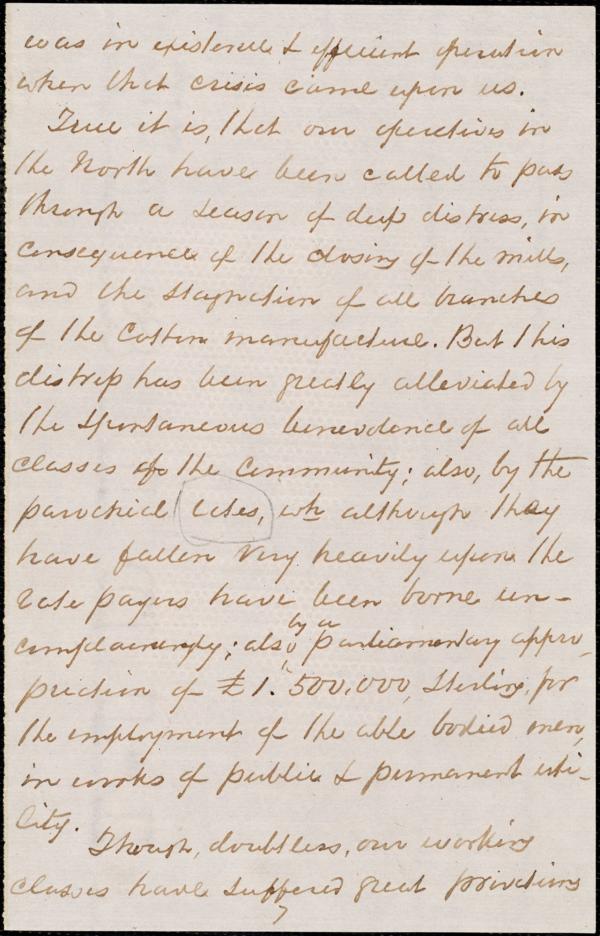 was in existence & efficient operation
when that crisis came upon us.
True it is, that our operatives in
the North have been called to pass
through a season of deep distress, in
consequence of the closing of the mills,
and the stagnation of all branches
of the Cotton manufacture. But this
distress has been greatly alleviated by
the spontaneous benevolence of all
classes of the Community; also, by the
parochial rates, wh although they
have fallen very heavily upon the
rate payers have been borne un-
complainingly; also by a parliamentary appro-
priation of £1.500.000, Sterling, for
the employment of the able bodied men,
in works of public & permanent uti-
lity.
Though, doubtless, our working
classes have suffered great privations
7